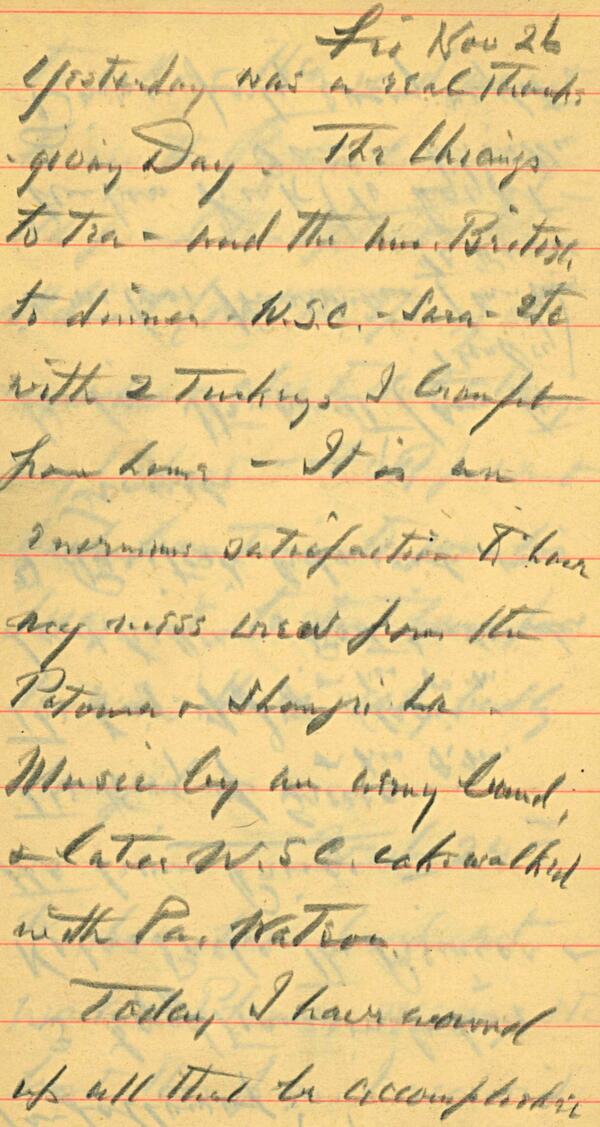 Fri Nov 26
Yesterday was a real Thanks
-giving Day. The Chiangs
to tea - and the Am. British
to dinner - W.S.C. - Sara - etc
with 2 Turkeys I brought
from home - It is an
enormous satisfaction to have
my mess crew from the
Potomac & Shangri La.
Music by an army band,
& later W.S.C. cakewalked
with Pa. Watson.
Today I have wound
up all that be accomplishe